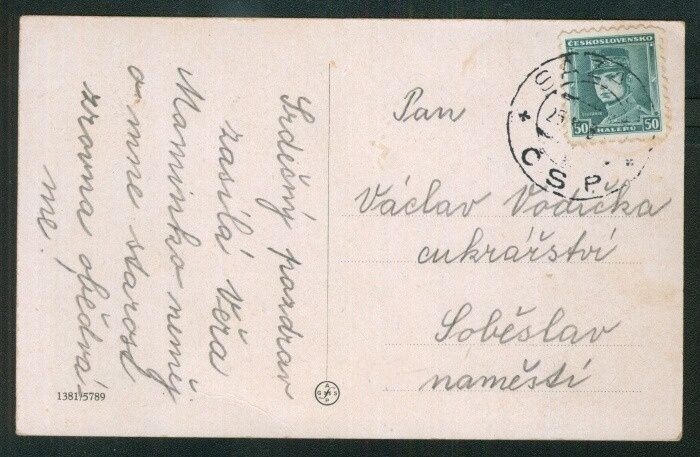 Srdečný pozdrav
zasílá Věra
Maminko neměj
o mne starost
zrovna obědvá-
me.
Pan
Václav Vodička
cukrářství
Soběslav
naměstí
ČESKOSLOVENSKO
50 HALÉŘŮ 50
ČSP
1381/5789